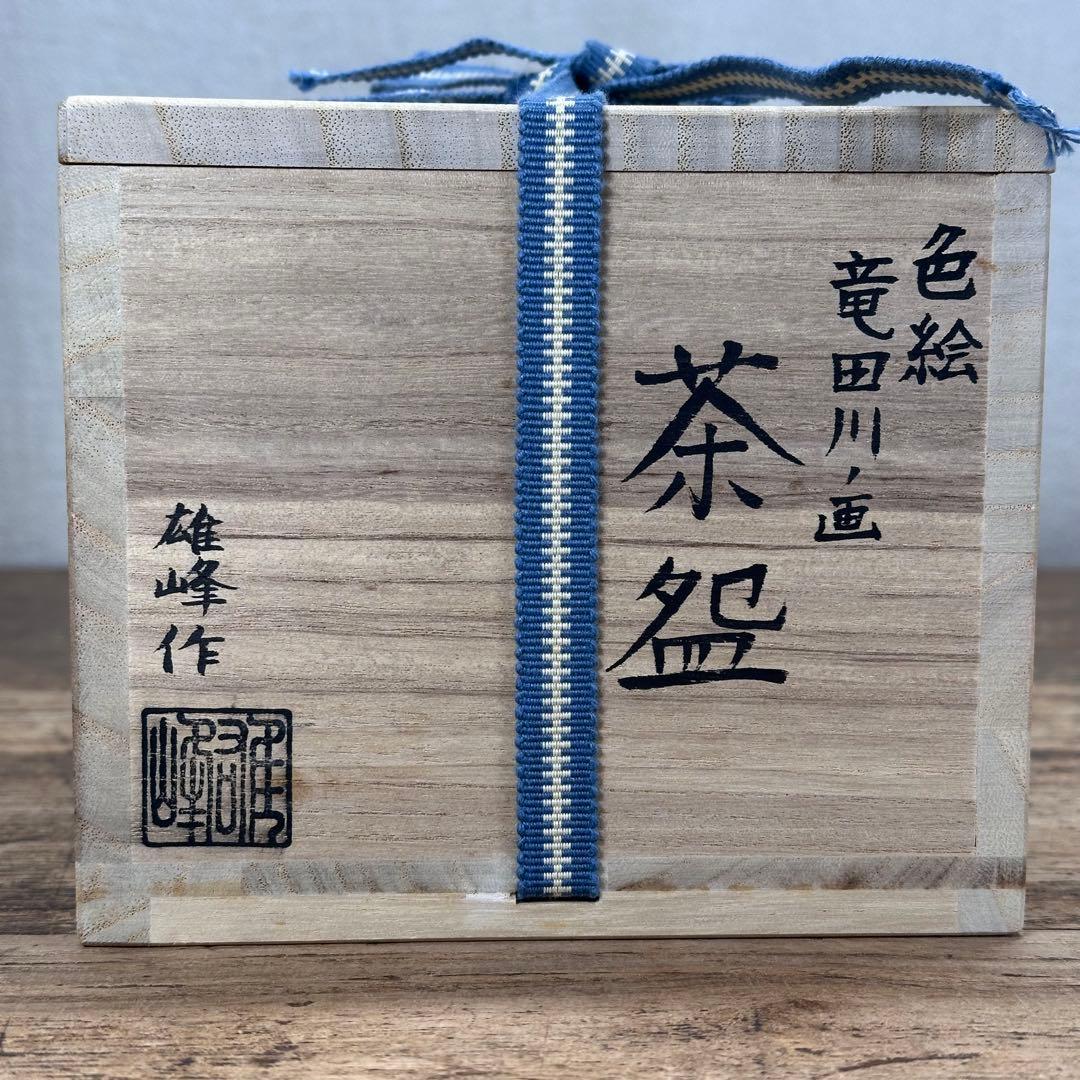 色絵
竜田川ノ画
茶盌
雄峰作
雄峰